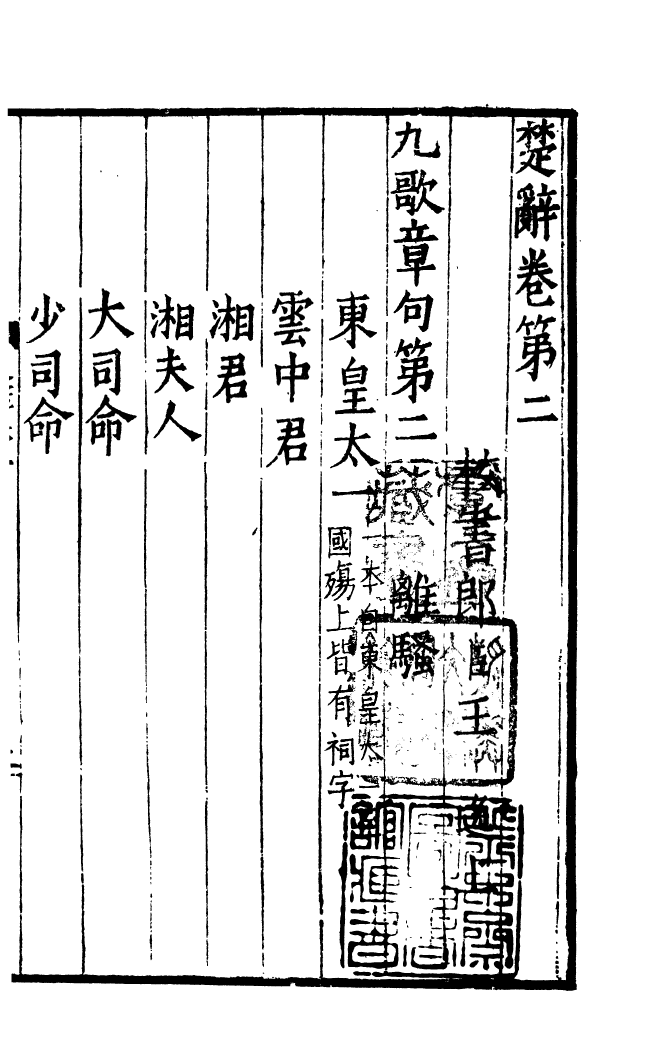 楚辭卷第二
校書郎臣王逸上
九歌章句第二　離騷
東皇太一 一本自東皇太一至國殤上皆有祠字
雲中君
湘君
湘夫人
大司命
少司命